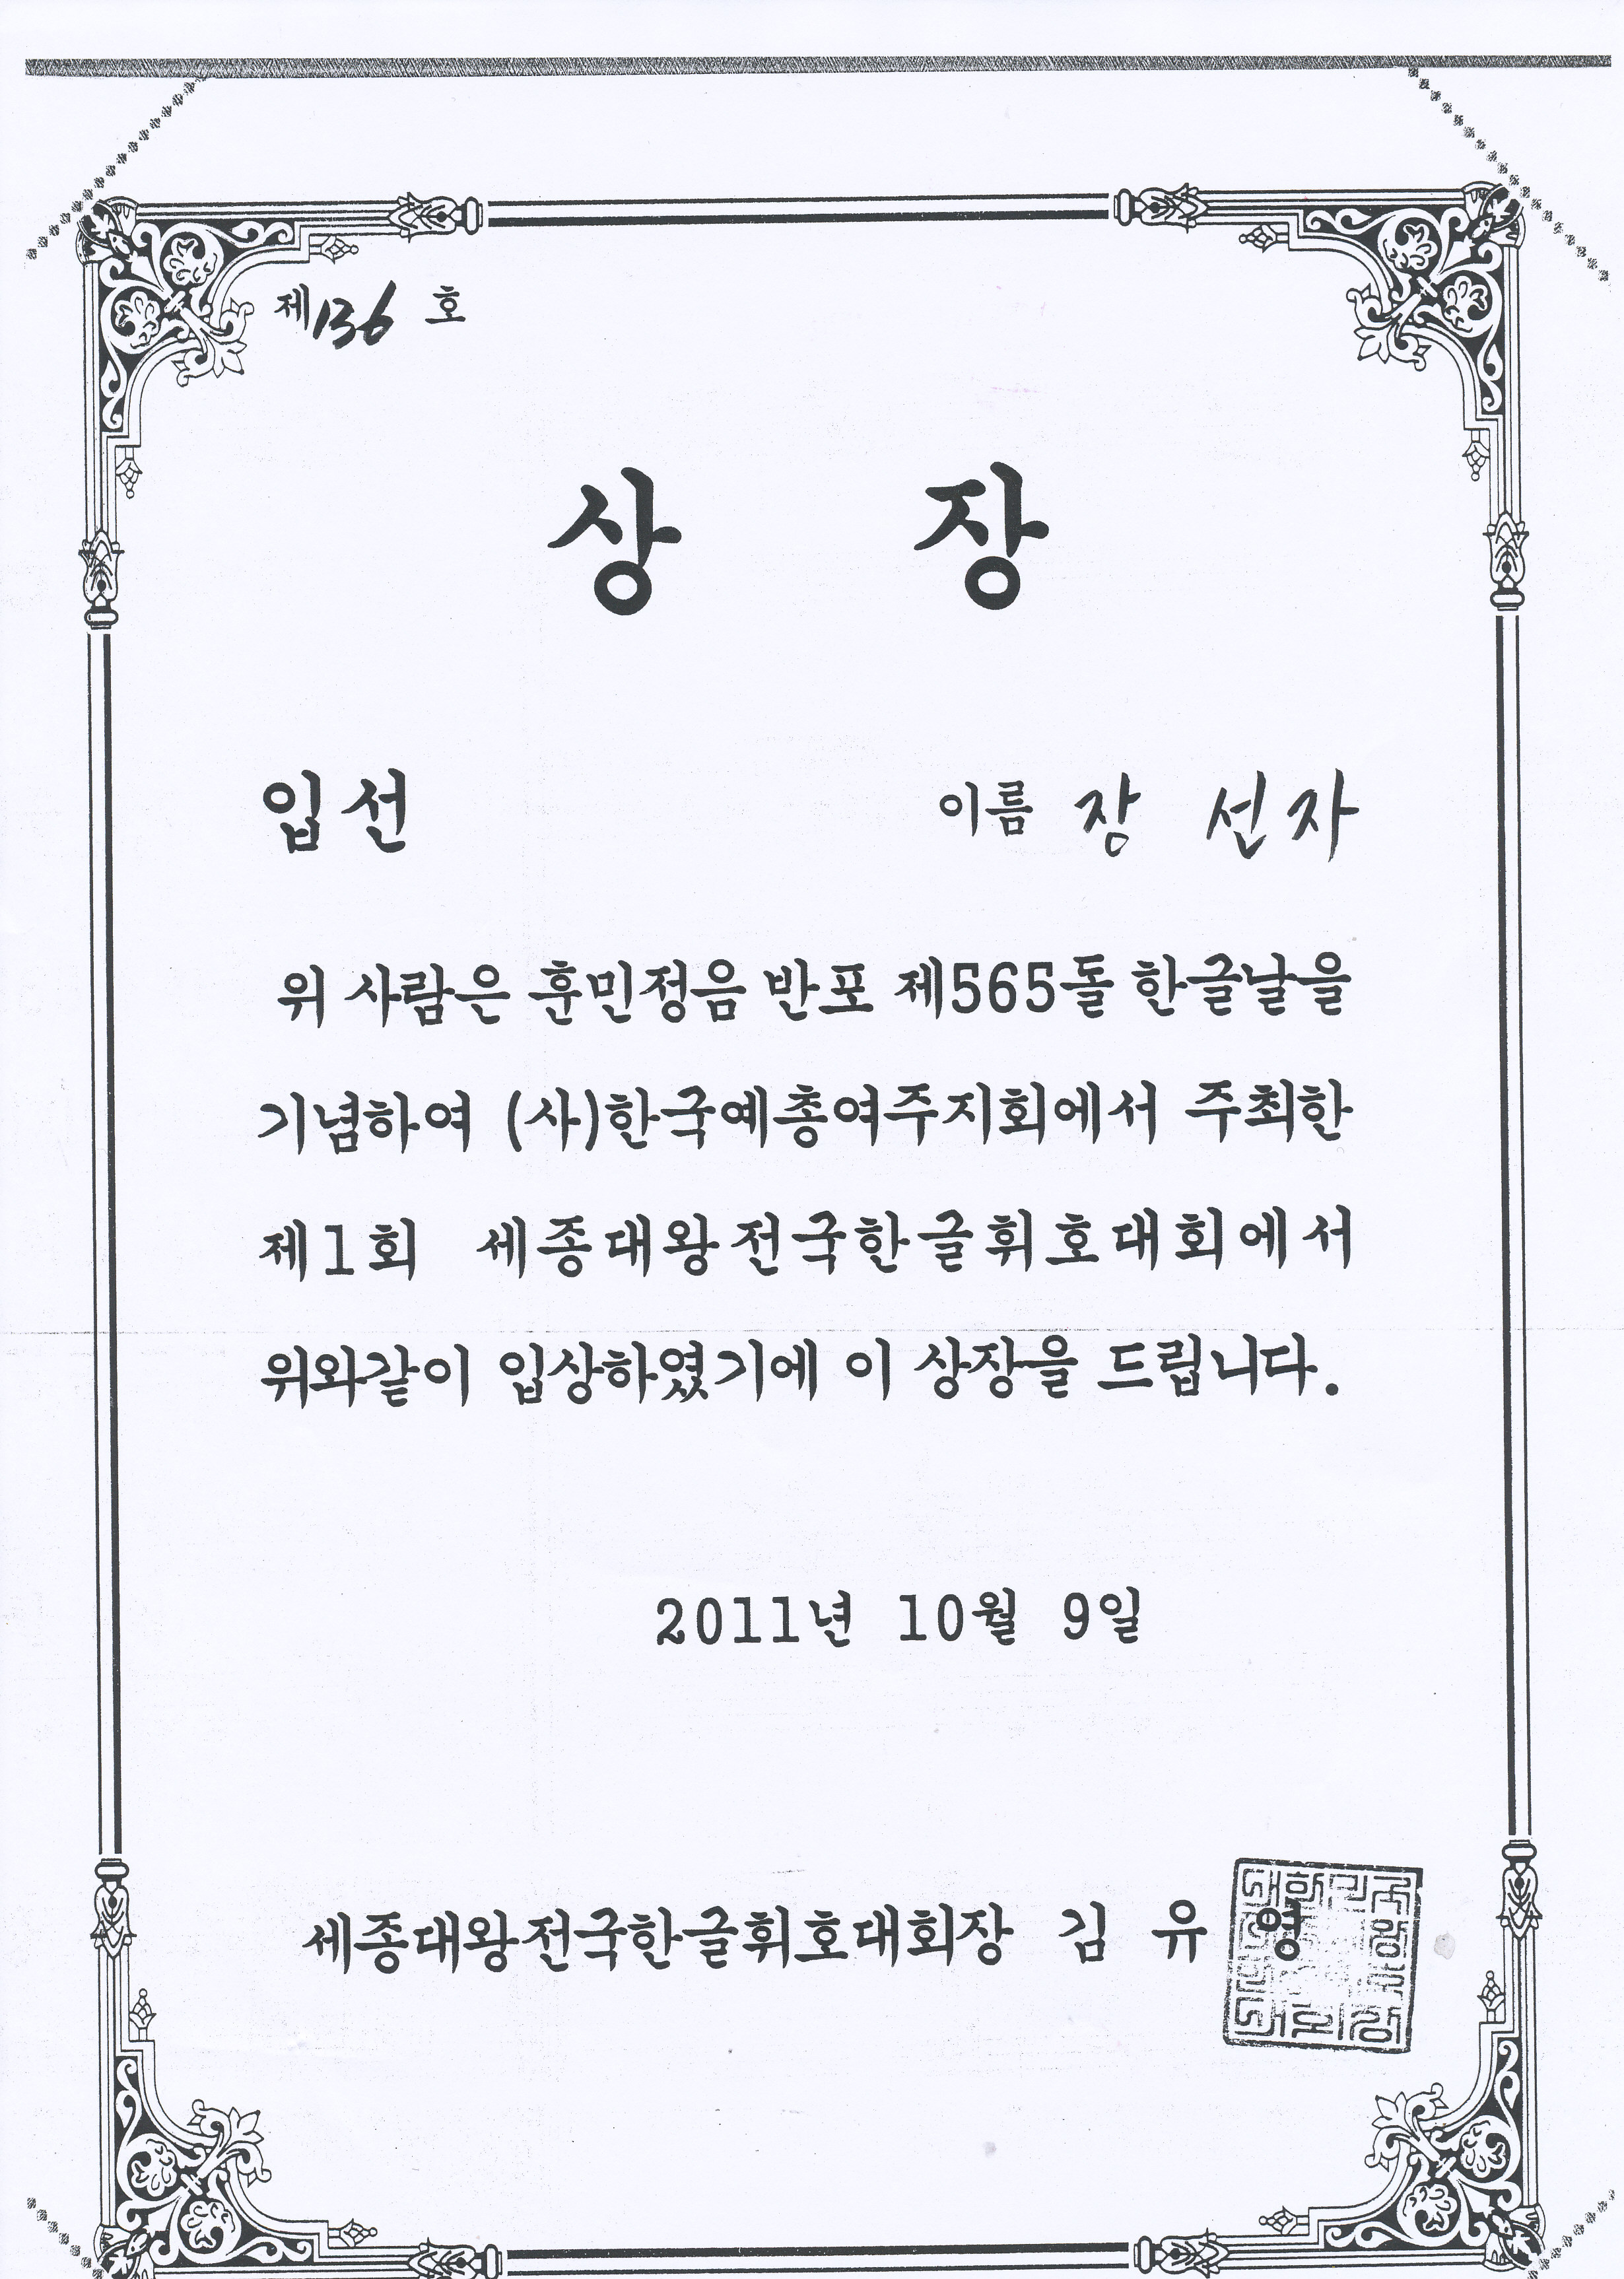 제136 호
상 장
입선 이름 장 선자
위 사람은 훈민정음 반포 제565돌 한글날을
기념하여 (사)한국예총여주지회에서 주최한
제1회 세종대왕전국한글휘호대회에서
위와같이 입상하였기에 이 상장을 드립니다.
2011년 10월 9일
세종대왕전국한글휘호대회장 김 유 영